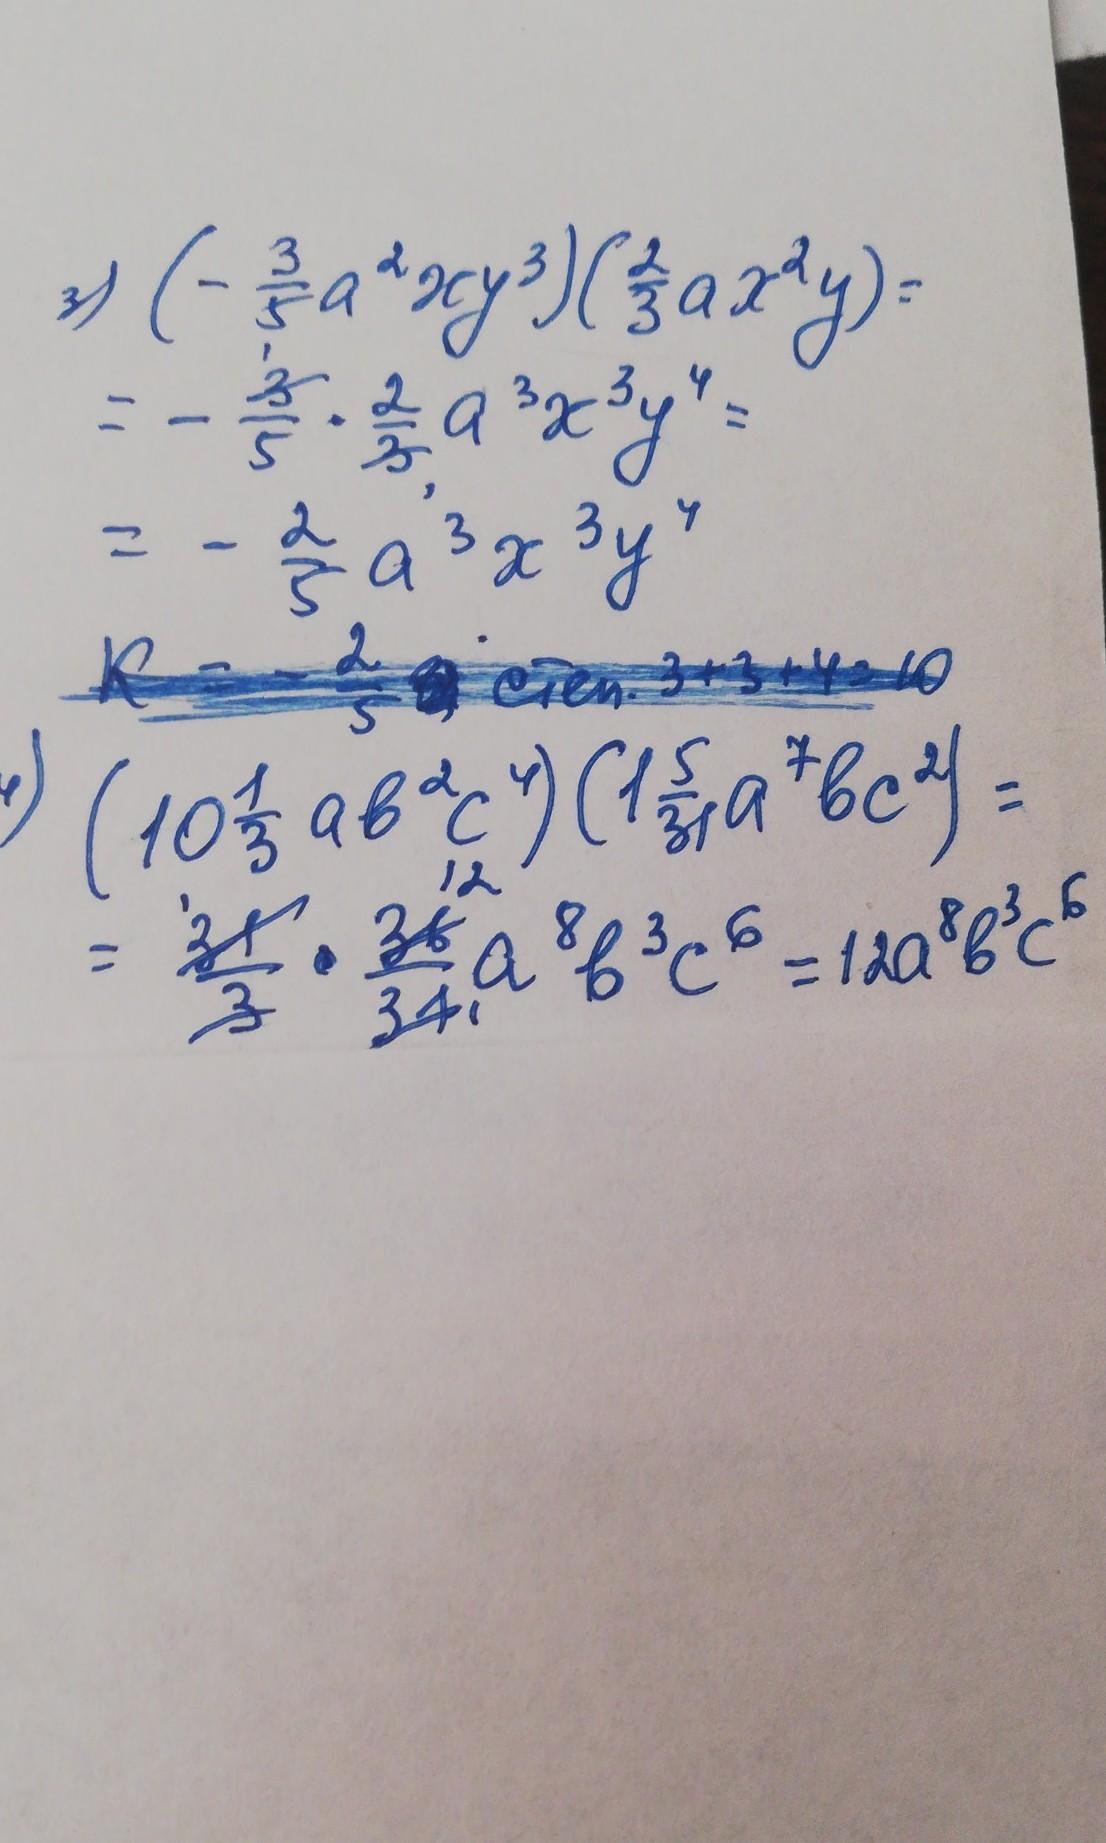 3) (- 3/5 a²xy³)(2/3 ax²y) =
= - 3/5 · 2/3 a³x³y⁴ =
= - 2/5 a³x³y⁴
К = - 2/5 степ. 3+3+4=10
4) (10 1/3 ab²c⁴)(1 5/31 a⁷bc²) =
= 31/3 · 36/31 a⁸b³c⁶ = 12a⁸b³c⁶